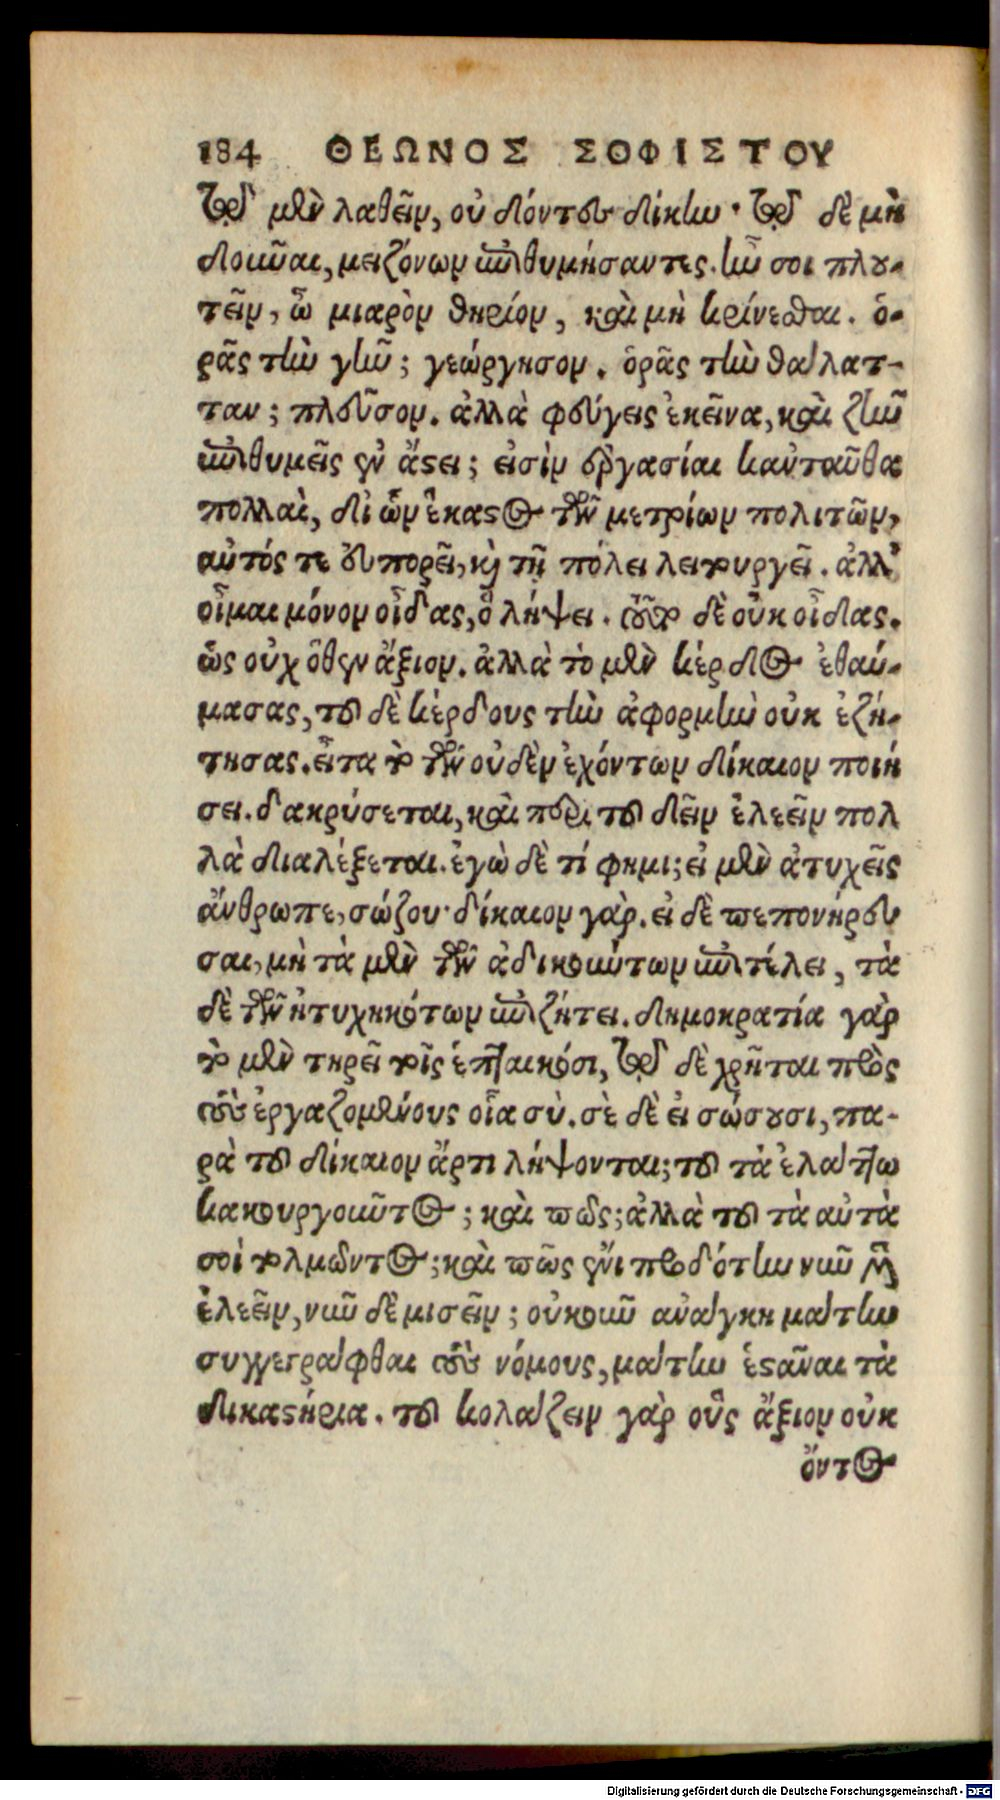 184 ΘΕΩΝΟΣ ΣΟΦΙΣΤΟΥ
τῷ μὲν λαθεῖν, οὐ δόντες δίκην· τῷ δὲ μὴ
δοῦναι, μειζόνων ἐπιθυμήσαντες. ἦν σοι πλου-
τεῖν, ὦ μιαρὸν θηρίον, καὶ μὴ κρίνεσθαι. ὁ-
ρᾷς τὴν γῆν; γεώργησον. ὁρᾷς τὴν θάλατ-
ταν; πλεῦσον. ἀλλὰ φεύγεις ἐκεῖνα, καὶ ζῆν
ἐπιθυμεῖς ἐν ἄστει; εἰσὶν ἐργασίαι κἀνταῦθα
πολλαὶ, δι' ὧν ἕκαστος τῶν μετρίων πολιτῶν,
αὐτός τε εὐπορεῖ, καὶ τῇ πόλει λειτουργεῖ. ἀλλ'
οἶμαι μόνον οἶδας, ὃ λήψει. τοῦτο δὲ οὐκ οἶδας.
ὡς οὐχ ὅθεν ἄξιον. ἀλλὰ τὸ μὲν κέρδος ἐθαύ-
μασας, τοῦ δὲ κέρδους τὴν ἀφορμὴν οὐκ ἐζή-
τησας. εἶτα τὸ τῶν οὐδὲν ἐχόντων δίκαιον ποιή
σει. δακρύσεται, καὶ περὶ τοῦ δεῖν ἐλεεῖν πολ
λὰ διαλέξεται. ἐγὼ δὲ τί φημι; εἰ μὲν ἀτυχεῖς
ἄνθρωπε, σώζου· δίκαιον γάρ. εἰ δὲ πεπονήρευ
σαι, μὴ τὰ μὲν τῶν ἀδικούντων ἐπιτέλει, τὰ
δὲ τῶν ἠτυχηκότων ἐπιζήτει. δημοκρατία γὰρ
τὸ μὲν τηρεῖ τοῖς ἐπταικόσι, τῷ δὲ χρῆται πρὸς
τοὺς ἐργαζομένους οἷα σύ. σὲ δὲ εἰ σώσουσι, πα-
ρὰ τοῦ δίκαιον ἄρτι λήψονται; τοῦ τὰ ἐλάττω
κακουργοῦντος; καὶ πῶς; ἀλλὰ τοῦ τὰ αὐτὰ
σοὶ τολμῶντος; καὶ πῶς ἔνι προδότην νῦν μὲν
ἐλεεῖν, νῦν δὲ μισεῖν; οὐκοῦν ἀνάγκη μάτην
συγγεγράφθαι τοὺς νόμους, μάτην ἑστάναι τὰ
δικαστήρια. τοῦ κολάζειν γὰρ οὓς ἄξιον οὐκ
ὄντος
Digitalisierung gefördert durch die Deutsche Forschungsgemeinschaft - DFG